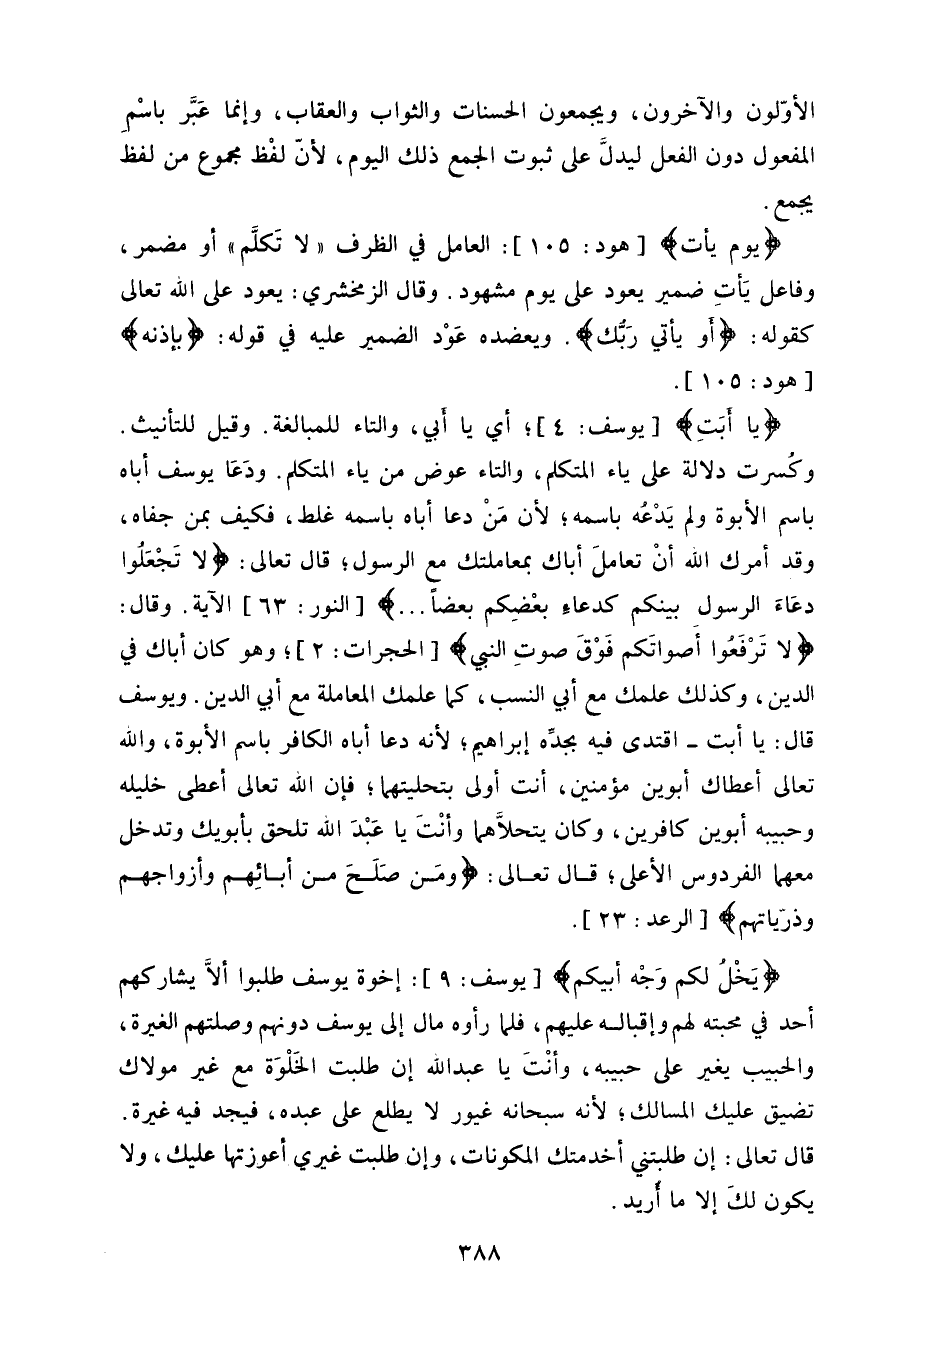 الأوّلون والآخرون، ويجمعون الحسنات والثواب والعقاب، وإنما عَبَّر باسْمِ
المفعول دون الفعل ليدلَّ على ثبوت الجمع ذلك اليوم، لأنّ لفْظ مجموع من لفظ
يجمع.
﴿يوم يأت﴾ [هود: ١٠٥]: العامل في الظرف «لا تَكلَّم» أو مضمر،
وفاعل يَأتِ ضمير يعود على يوم مشهود. وقال الزمخشري: يعود على الله تعالى
كقوله: ﴿أَو يأتي رَبُّك﴾. ويعضده عَوْد الضمير عليه في قوله: ﴿بإذنه﴾
[هود: ١٠٥].
﴿يا أَبَتِ﴾ [يوسف: ٤]؛ أي يا أَبي، والتاء للمبالغة. وقيل للتأنيث.
وكُسرت دلالة على ياء المتكلم، والتاء عوض من ياء المتكلم. ودَعَا يوسف أباه
باسم الأبوة ولم يَدْعُه باسمه؛ لأن مَنْ دعا أباه باسمه غلط، فكيف بمن جفاه،
وقد أمرك الله أنْ تعاملَ أباك بمعاملتك مع الرسول؛ قال تعالى: ﴿لا تَجْعَلُوا
دعَاءَ الرسولِ بينكم كدعاءِ بعْضِكم بعضاً...﴾ [النور: ٦٣] الآية. وقال:
﴿لا تَرْفَعُوا أصواتَكم فَوْقَ صوتِ النبي﴾ [الحجرات: ٢]؛ وهو كان أباك في
الدين، وكذلك علمك مع أبي النسب، كما علمك المعاملة مع أبي الدين. ويوسف
قال: يا أبت - اقتدى فيه بجدِّه إبراهيم؛ لأنه دعا أباه الكافر باسم الأبوة، والله
تعالى أعطاك أبوين مؤمنين، أنت أولى بتحليتهما؛ فإن الله تعالى أعطى خليله
وحبيبه أبوين كافرين، وكان يتحلاَّهما وأنْتَ يا عَبْدَ الله تلحق بأبويك وتدخل
معهما الفردوس الأعلى؛ قال تعالى: ﴿ومَن صلَحَ من أبائِهم وأزواجهم
وذرّياتهم﴾ [الرعد: ٢٣].
﴿يَخْلُ لكم وَجْه أبيكم﴾ [يوسف: ٩]: إخوة يوسف طلبوا ألاَّ يشاركهم
أحد في محبته لهم وإقباله عليهم، فلما رأوه مال إلى يوسف دونهم وصلتهم الغيرة،
والحبيب يغير على حبيبه، وأنْتَ يا عبدالله إن طلبت الخَلْوَة مع غير مولاك
تضيق عليك المسالك؛ لأنه سبحانه غيور لا يطلع على عبده، فيجد فيه غيرة.
قال تعالى: إن طلبتني أخدمتك المكونات، وإن طلبت غيري أعوزتها عليك، ولا
يكون لكَ إلا ما أُريد.
٣٨٨